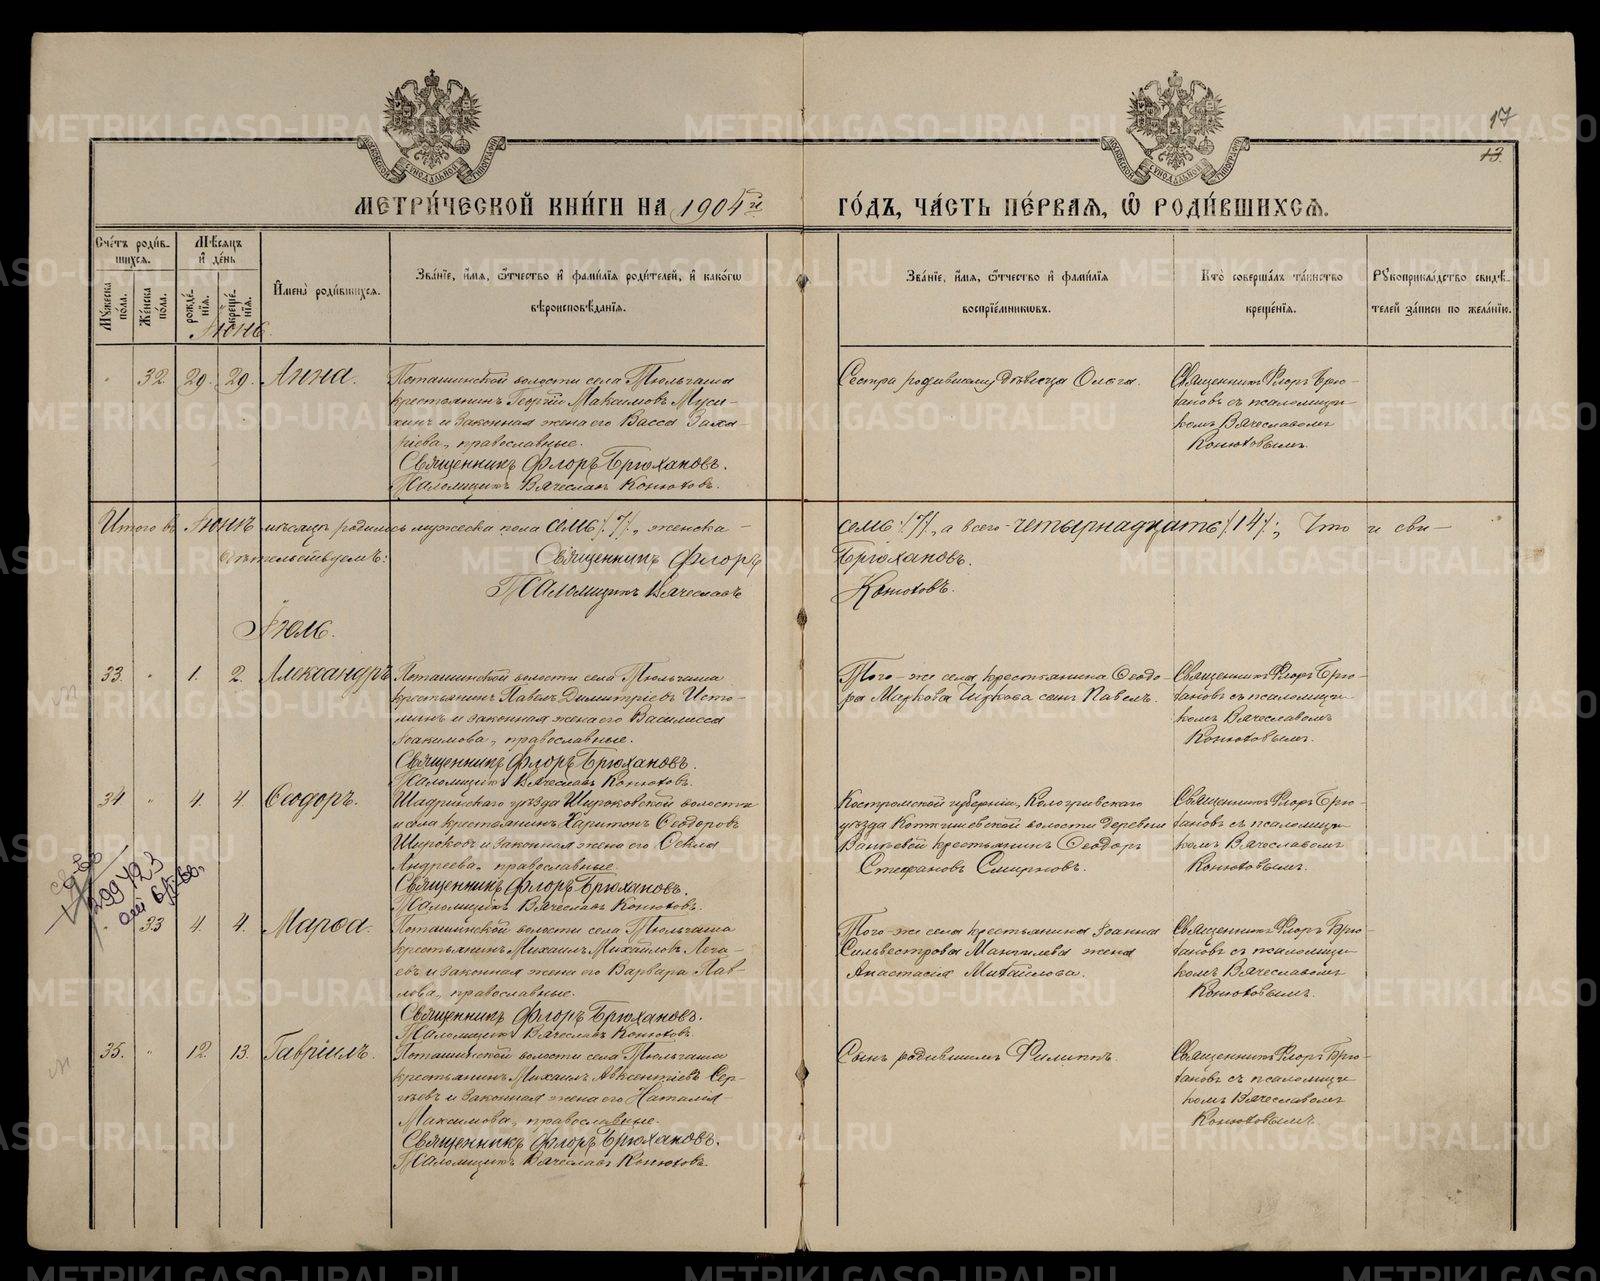 17
13.
МЕТРИ́ЧЕСКОЙ КНИ́ГИ НА 1904й
ГО́ДЪ, ЧА́СТЬ ПЕ́РВАѦ, Ѽ РОДИ́ВШИХСѦ.
Сче́тъ роди́в-
шихся.
Мѣ́сяцъ
и҆ де́нь
Му́жеска по́ла.
Же́нска по́ла.
рожде́нїя.
креще́нїя.
И҆мена̀ роди́вшихся.
Зва́нїе, и҆́мя, ѻ҆́тчество и҆ фами́лїя роди́телей, и҆ како́гѡ
вѣроисповѣ́данїя.
Зва́нїе, и҆́мя, ѻ҆́тчество и҆ фами́лїя
воспрїе́мниковъ.
Кто̀ соверша́лъ та́инство
креще́нїя.
Рꙋкоприкла́дство свидѣ́-
телей за́писи по жела́нїю.
Іюнь.
32 29. 29. Анна.
Поташинской волости села Тюльгаша
крестьянинъ Георгій Максимовъ Муси-
хинъ и законная жена его Васса Заха-
ріева, православные.
Священникъ Флоръ Брюхановъ.
Псаломщикъ Вячеславъ Конюховъ.
Сестра родившему дѣвица Ольга.
Священникъ Флоръ Брю-
хановъ съ псаломщи-
комъ Вячеславомъ
Конюховымъ.
Итого въ Іюнѣ мѣсяцѣ родилось мужеска пола семь /7/, женска -
семь /7/, а всего четырнадцать /14/; Что и сви-
дѣтельствуемъ:
Священникъ Флоръ
Брюхановъ.
Псаломщикъ Вячеславъ
Конюховъ.
Іюль.
33. " 1. 2. Александръ
Поташинской волости села Тюльгаша
крестьянинъ Павелъ Димитріевъ Исто-
минъ и законная жена его Василисса
Іоакимова, православные.
Священникъ Флоръ Брюхановъ.
Псаломщикъ Вячеславъ Конюховъ.
Того-же села крестьянина Ѳеодо-
ра Маркова сынъ Павелъ.
Священникъ Флоръ Брю-
хановъ съ псаломщи-
комъ Вячеславомъ
Конюховымъ.
34 " 4. 4. Ѳеодоръ.
Шадринскаго уѣзда Широковской волости
и села крестьянинъ Харитонъ Ѳеодоровъ
Широковъ и законная жена его Ѳекла
Андреева, православные.
Священникъ Флоръ Брюхановъ.
Псаломщикъ Вячеславъ Конюховъ.
Костромской губерніи, Кологривскаго
уѣзда волости деревни
крестьянинъ Ѳеодоръ
Стефановъ Смирновъ.
Священникъ Флоръ Брю-
хановъ съ псаломщи-
комъ Вячеславомъ
Конюховымъ.
" 33 4. 4. Марѳа.
Поташинской волости села Тюльгаша
крестьянинъ Михаилъ Михайловъ
и законная жена его Варвара Пав-
лова, православные.
Священникъ Флоръ Брюхановъ.
Псаломщикъ Вячеславъ Конюховъ.
Того-же села крестьянина Іоанна
Сильвестрова жена
Анастасія Михайлова.
Священникъ Флоръ Брю-
хановъ съ псаломщи-
комъ Вячеславомъ
Конюховымъ.
35. " 12. 13. Гавріилъ.
Поташинской волости села Тюльгаша
крестьянинъ Михаилъ Авксентіевъ Сер-
гѣевъ и законная жена его Наталія
Максимова, православные.
Священникъ Флоръ Брюхановъ.
Псаломщикъ Вячеславъ Конюховъ.
Сынъ родившимъ Филиппъ.
Священникъ Флоръ Брю-
хановъ съ псаломщи-
комъ Вячеславомъ
Конюховымъ.
METRIKI.GASO-URAL.RU